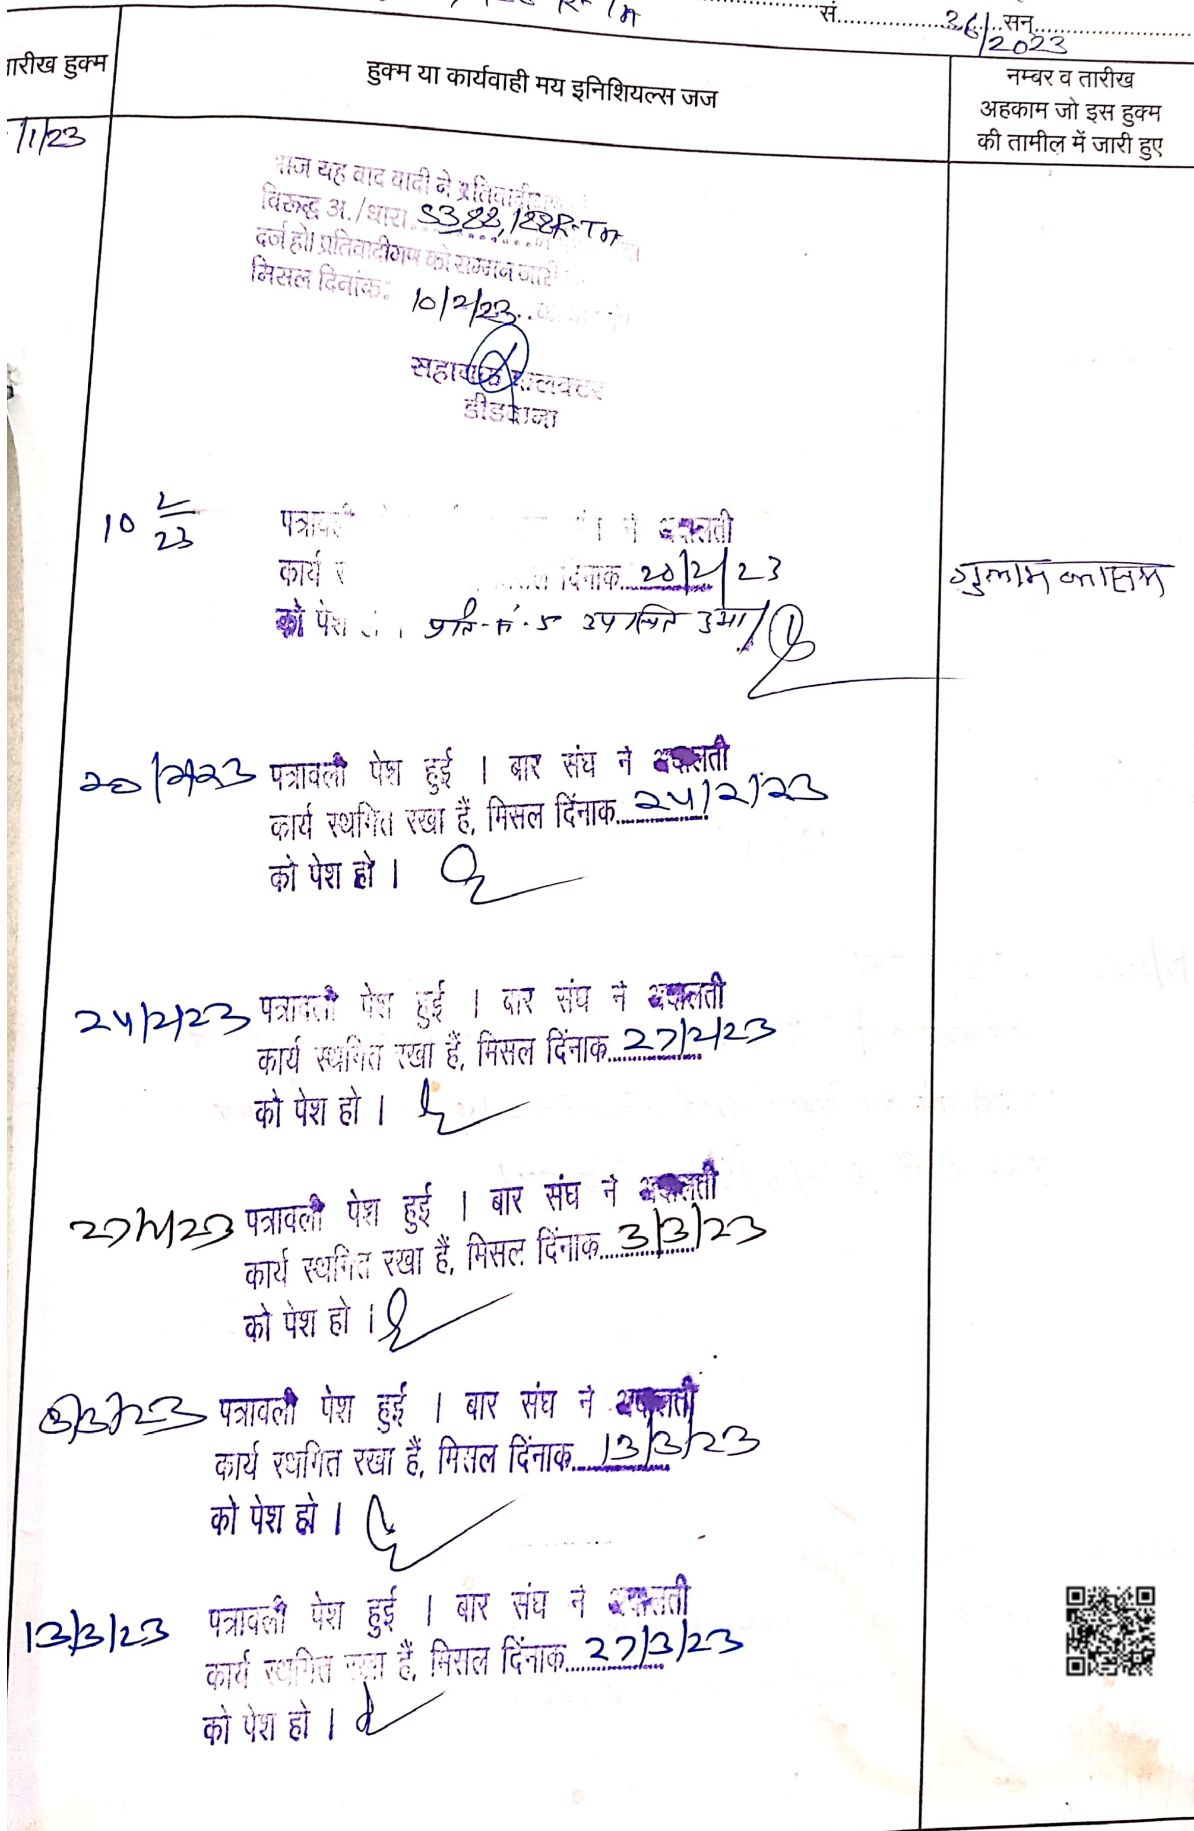 सं. 36 सन्
/2023
तारीख हुक्म
हुक्म या कार्यवाही मय इनिशियल्स जज
नम्बर व तारीख
अहकाम जो इस हुक्म
की तामील में जारी हुए
/1/23
आज यह वाद वादी ने प्रतिवादीगण
विरूद्ध अ./धारा. 188
दर्ज हो। प्रतिवादीगण को सम्मन जारी
मिसल दिनांक: 10/2/23
सहायक कलक्टर
डीडवाना
10 2/23 पत्रावली ने अदालती
कार्य दिंनाक 20/2/23
को पेश प्रति-सं-5 उपस्थित हुआ/
गुलाम कासम
20/2/23 पत्रावली पेश हुई । बार संघ ने अदालती
कार्य स्थगित रखा हैं, मिसल दिंनाक 24/2/23
को पेश हो ।
24/2/23 पत्रावली पेश हुई । बार संघ ने अदालती
कार्य स्थगित रखा हैं, मिसल दिंनाक 27/2/23
को पेश हो ।
27/2/23 पत्रावली पेश हुई । बार संघ ने अदालती
कार्य स्थगित रखा हैं, मिसल दिंनाक 3/3/23
को पेश हो ।
3/3/23 पत्रावली पेश हुई । बार संघ ने अदालती
कार्य स्थगित रखा हैं, मिसल दिंनाक 13/3/23
को पेश हो ।
13/3/23 पत्रावली पेश हुई । बार संघ ने अदालती
कार्य स्थगित रखा हैं, मिसल दिंनाक 27/3/23
को पेश हो ।